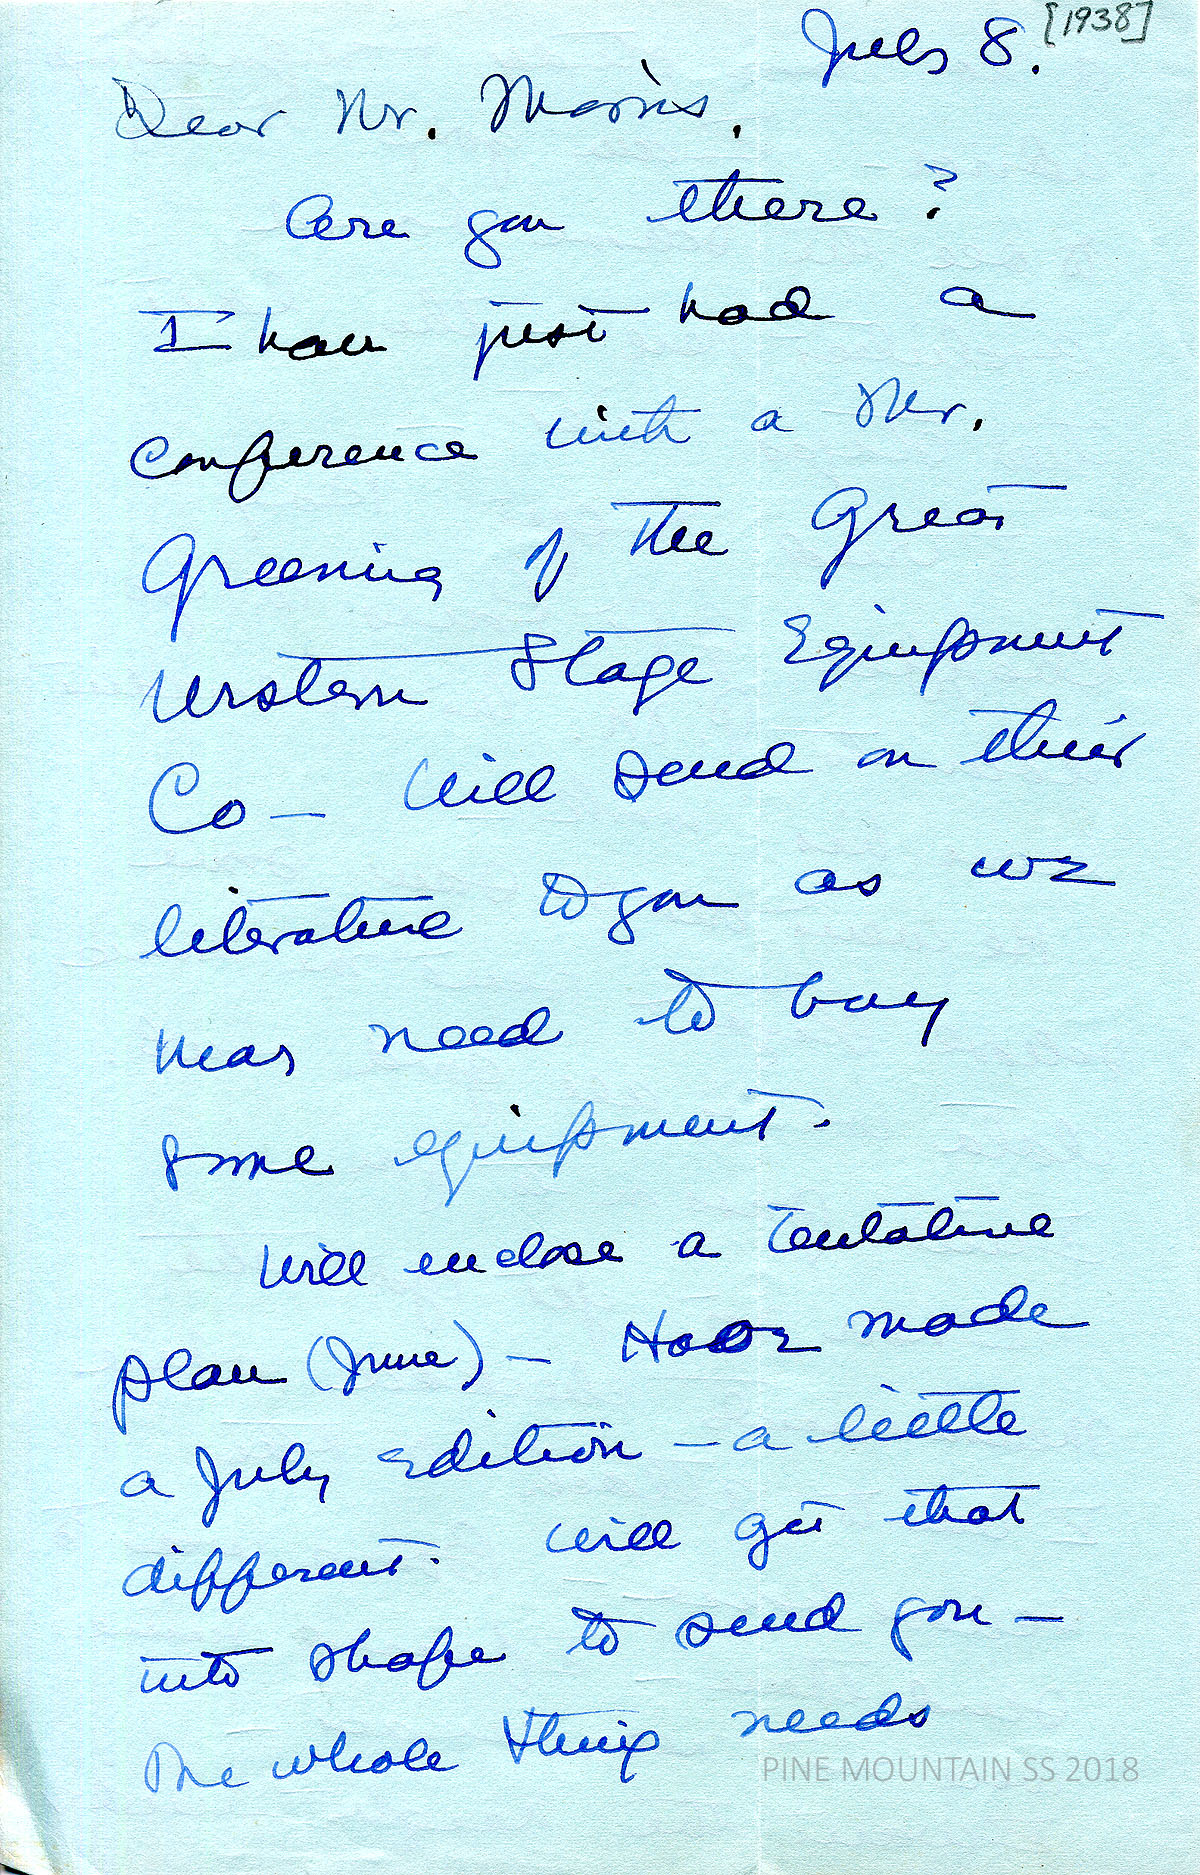 July 8. [1938]
Dear Mr. Morris.
Are you there?
I have just had a
conference with a Mr.
Greening of the Great
Western Stage Equipment
Co — Will send on their
literature to you as we
may need to buy
some equipment.
Will enclose a tentative
plan (June) — Have made
a July edition — a little
different. Will get that
into shape to send you —
The whole thing needs
PINE MOUNTAIN SS 2018